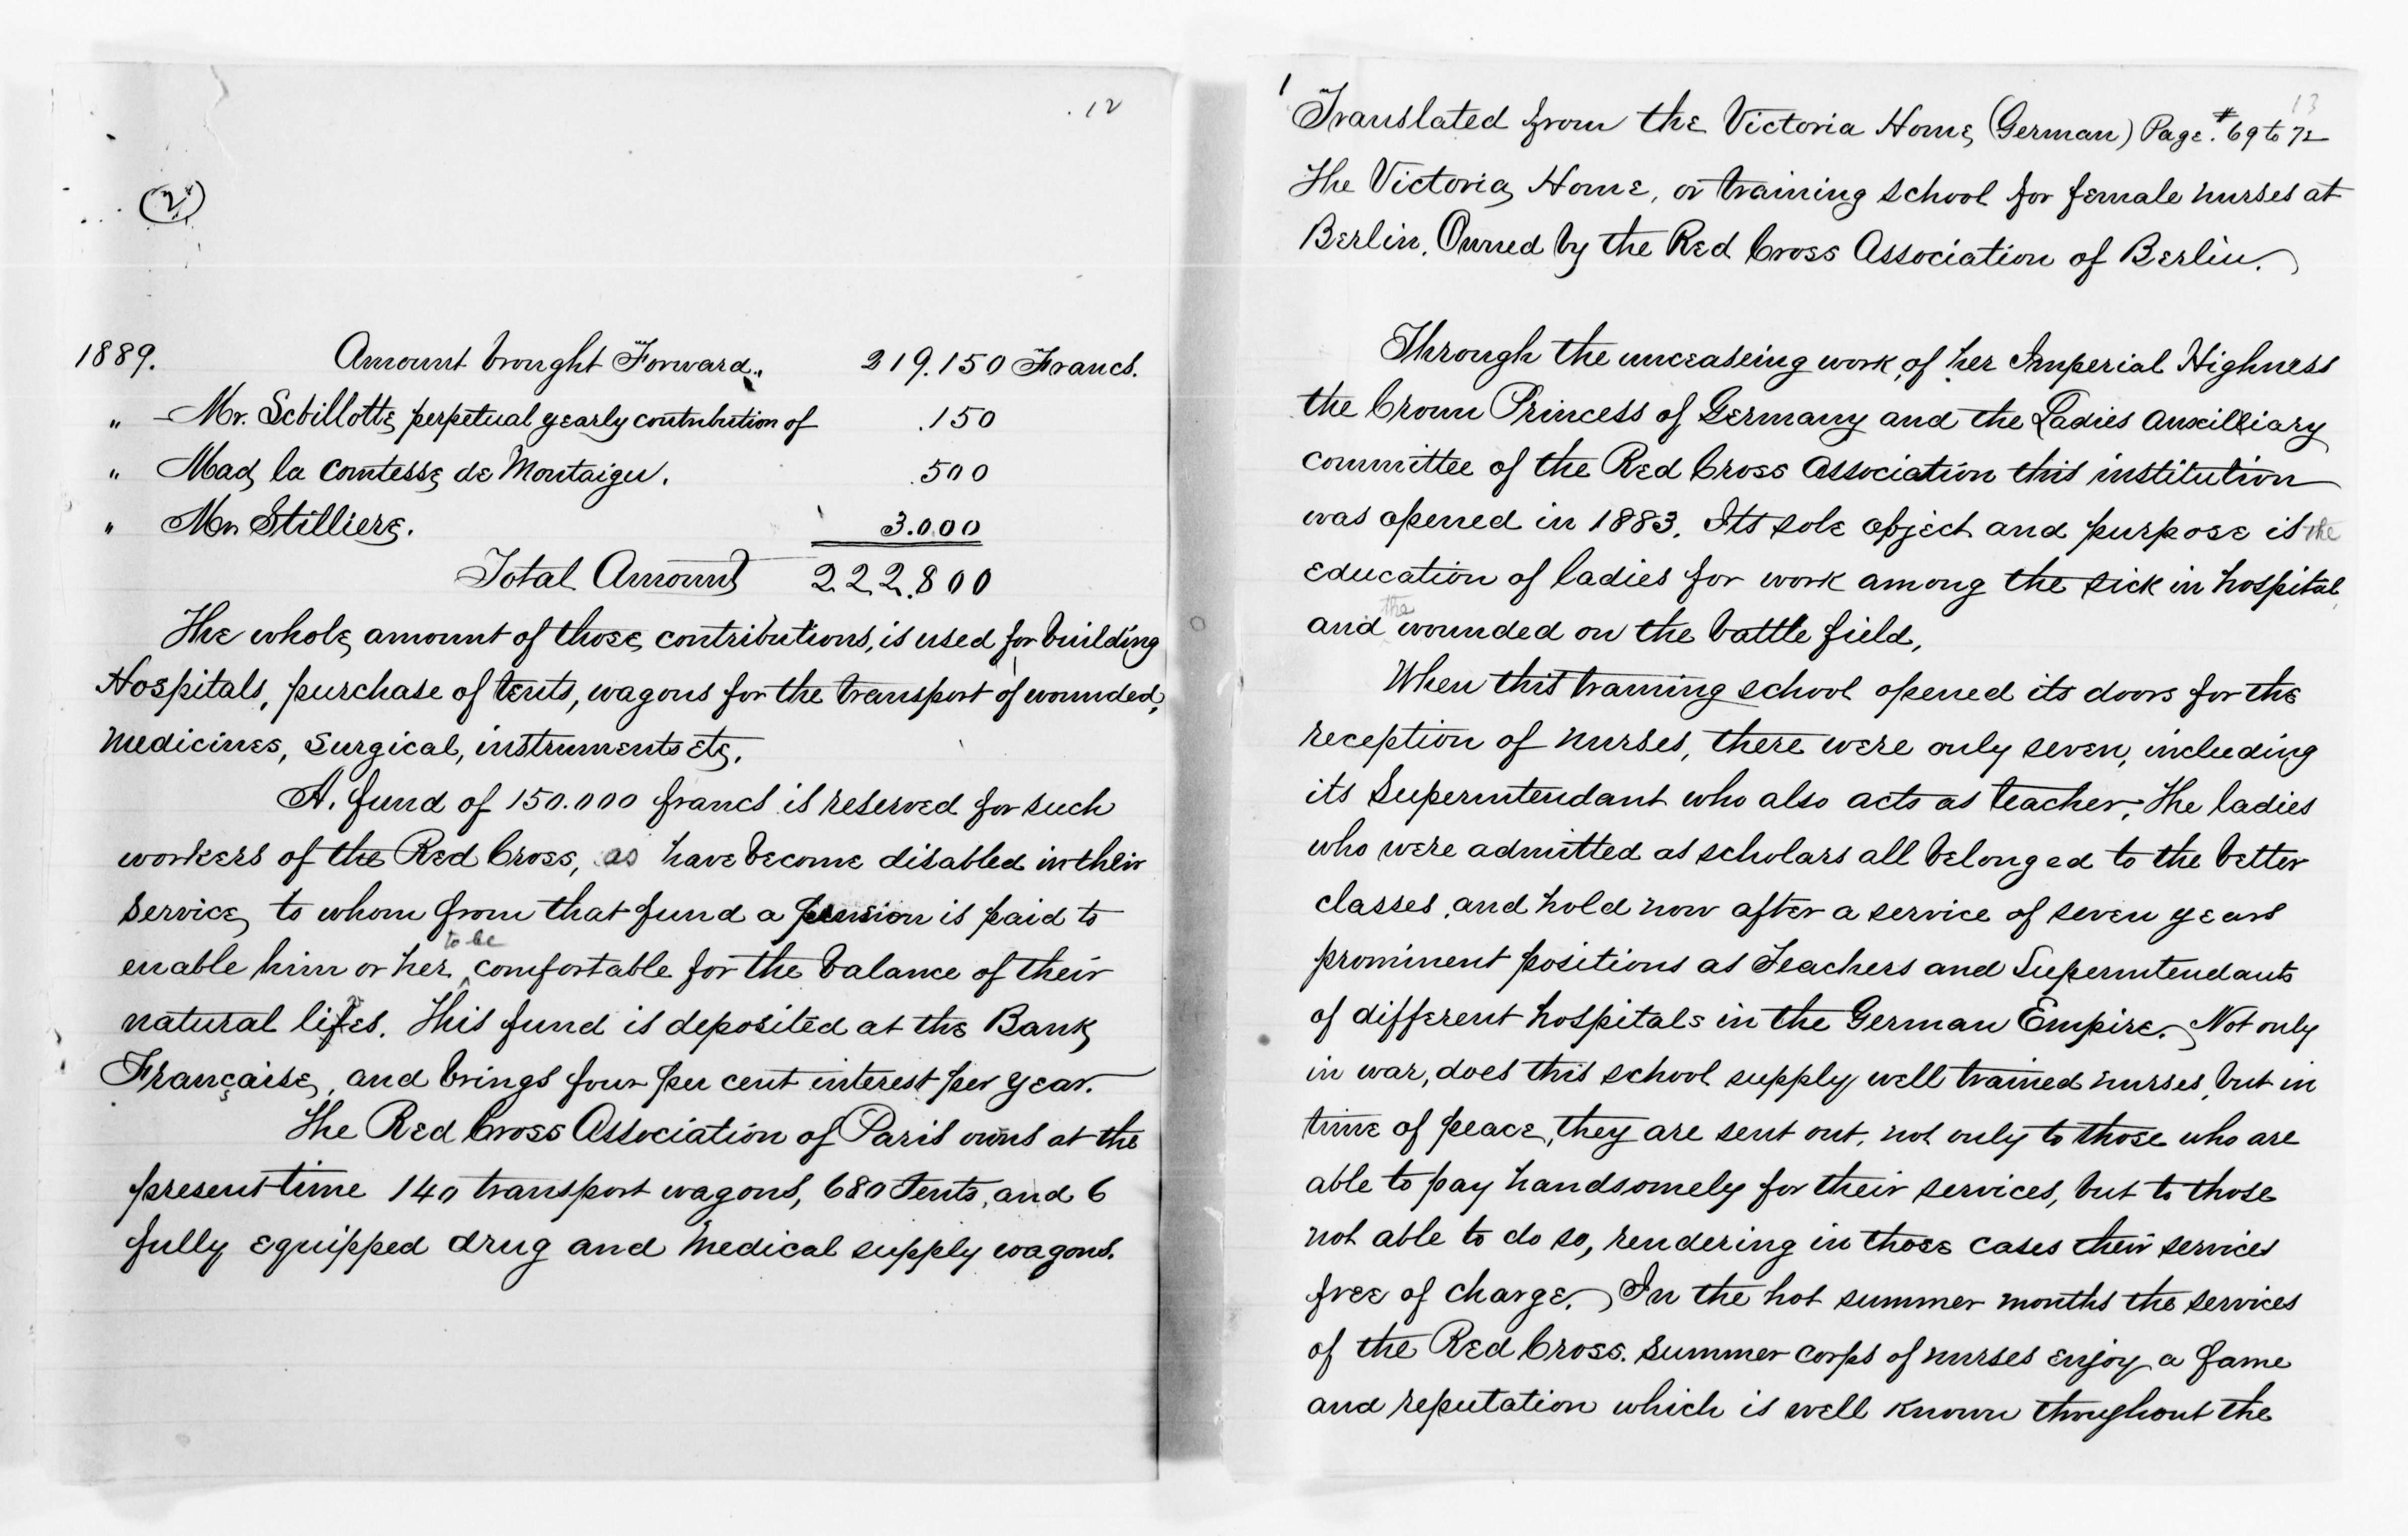 12
(2)
1889. Amount brought Forward „ 219.150 Francs.
„ Mr. Sebillotte perpetual yearly contribution of .150
„ Mad, la Comtesse de Montaigu. .500
„ Mr. Stilliere. 3.000
Total Amount 222.800
The whole amount of those contributions, is used for building
Hospitals, purchase of tents, wagons for the transport of wounded,
medicines, surgical, instruments etc.
A. fund of 150.000 francs is reserved for such
workers of the Red Cross, as have become disabled in their
service, to whom from that fund a pension is paid to
enable him or her to be comfortable for the balance of their
natural lifes. This fund is deposited at the Bank
Française, and brings four per cent interest per year.
The Red Cross Association of Paris owns at the
present time 140 transport wagons, 680 Tents, and 6
fully equipped drug and medical supply wagons.
1
13
Translated from the Victoria Home (German) Page. # 69 to 72
The Victoria Home, or training school for female nurses at
Berlin. Owned by the Red Cross Association of Berlin.
Through the unceaseing work of her Imperial Highness
the Crown Princess of Germany and the Ladies Auxilliary
committee of the Red Cross Association this institution
was opened in 1883. Its sole object and purpose is the
education of ladies for work among the sick in hospital
and the wounded on the battle field,
When this training school opened its doors for the
reception of nurses, there were only seven, including
its Superintendant who also acts as teacher, The ladies
who were admitted as scholars all belonged to the better
classes, and hold now after a service of seven years
prominent positions as Teachers and Superintendants
of different hospitals in the German Empire. Not only
in war, does this school supply well trained nurses, but in
time of peace, they are sent out, not only to those who are
able to pay handsomely for their services, but to those
not able to do so, rendering in those cases their services
free of charge. In the hot summer months the services
of the Red Cross. summer corps of nurses enjoy a fame
and reputation which is well known throughout the